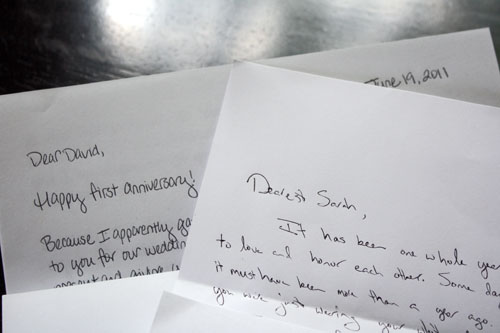 June 19, 2011
Dear David,
Happy first anniversary!
Because I apparently ga
to you for our weddin
Dearest Sarah,
It has been one whole year
to love and honor each other. Some da
it must have been more than a year ago.
you were just wearing your